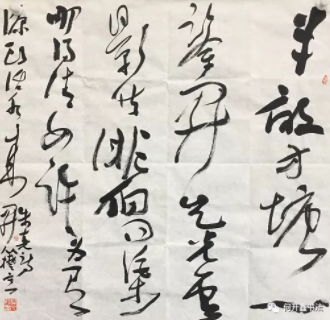 半畝方塘一
鑒开天光雲
影共徘徊问渠
哪得清如許为有
源头活水来
朱熹詩